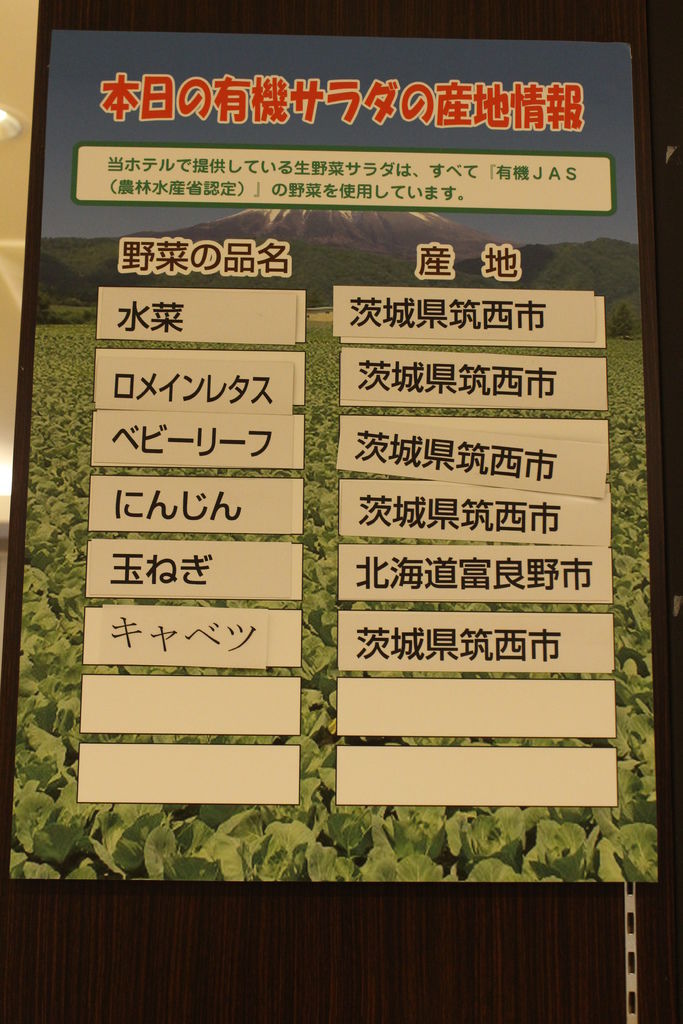 本日の有機サラダの産地情報
当ホテルで提供している生野菜サラダは、すべて『有機JAS
（農林水産省認定）』の野菜を使用しています。
野菜の品名 産 地
水菜 茨城県筑西市
ロメインレタス 茨城県筑西市
ベビーリーフ 茨城県筑西市
にんじん 茨城県筑西市
玉ねぎ 北海道富良野市
キャベツ 茨城県筑西市